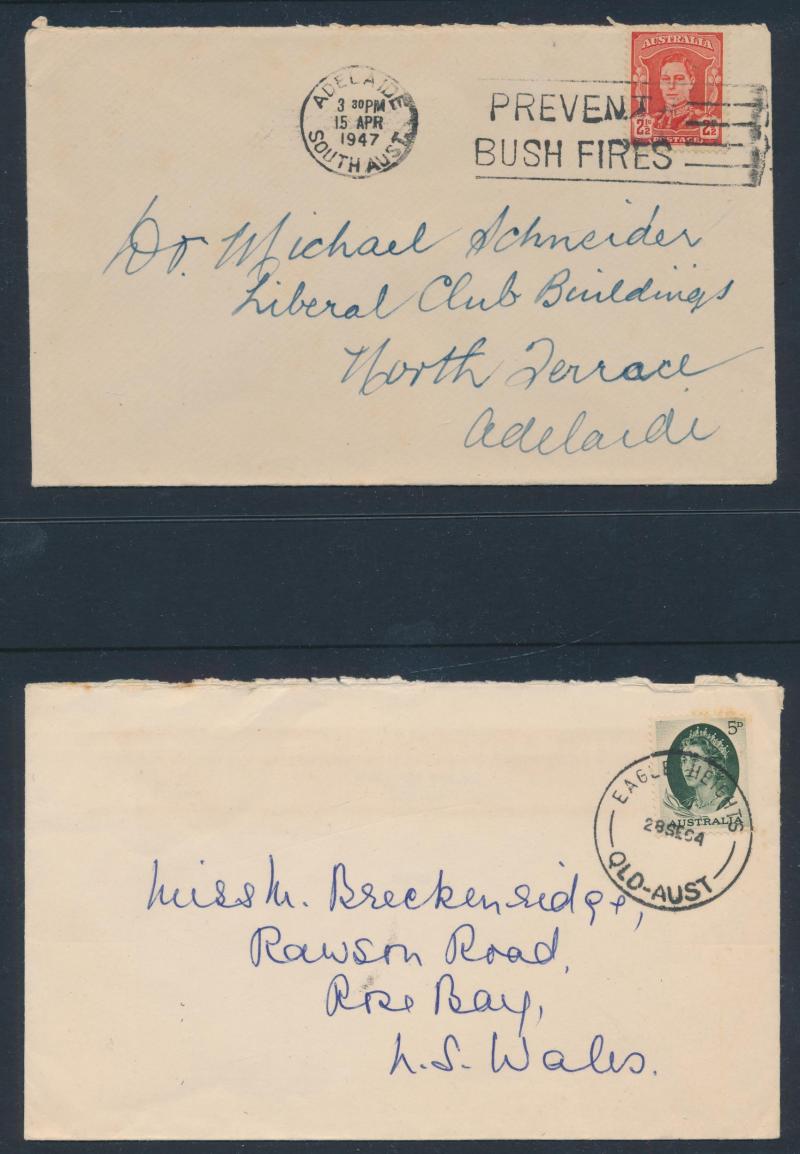 ADELAIDE
3 30PM
15 APR
1947
SOUTH AUST.
PREVENT
BUSH FIRES
AUSTRALIA
2½D 2½D
POSTAGE
Dr. Michael Schneider
Liberal Club Buildings
North Terrace
Adelaide
5D
AUSTRALIA
EAGLE HEIGHTS
28SE64
QLD-AUST
Miss M. Breckenridge,
Rawson Road,
Rose Bay,
N.S. Wales.